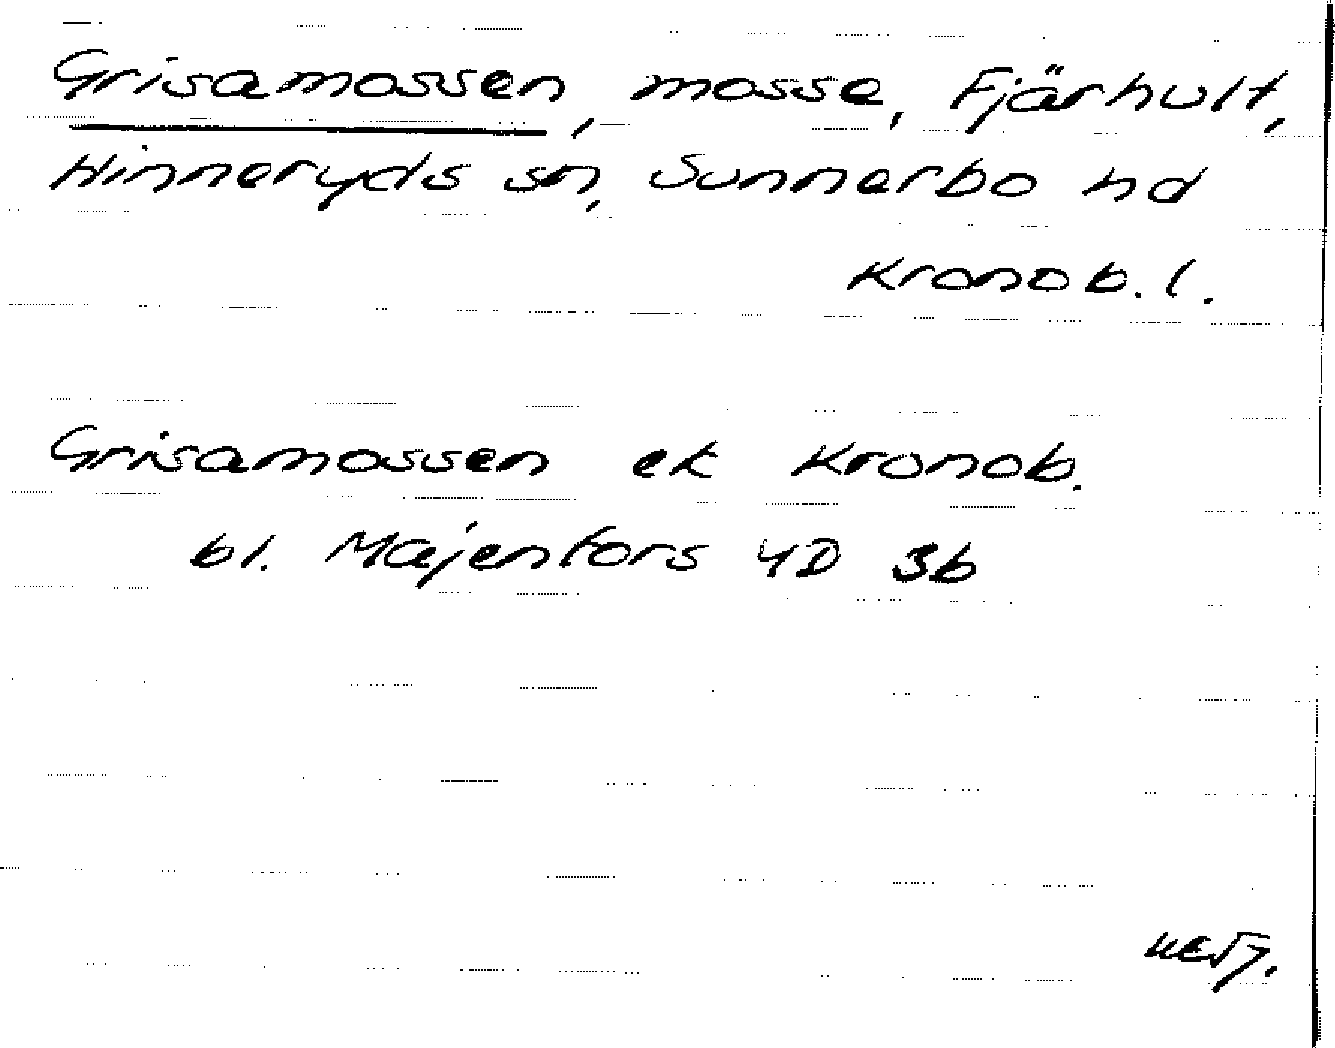 Grisamossen, mosse, Fjärhult,
Hinneryds sn, Sunnerbo hd
Kronob. l.
Grisamossen ek Kronob.
bl. Majenfors 4D 3b